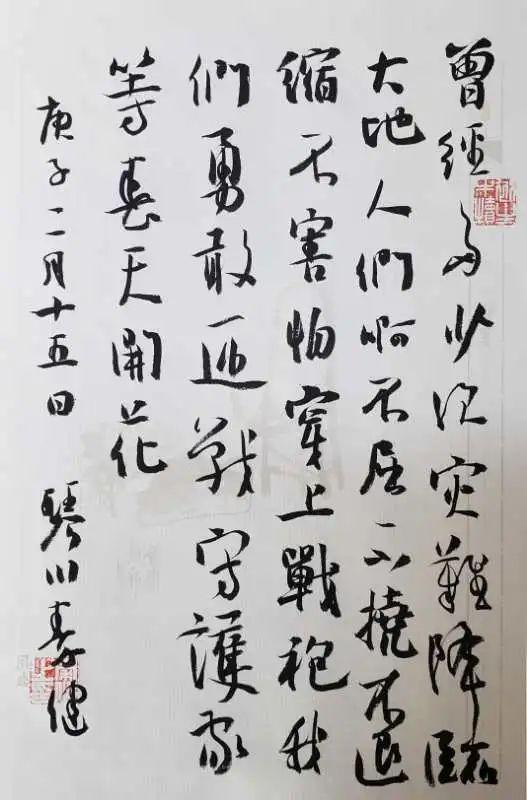 曾經多少次災難降臨
大地人們啊不屈不撓不退
縮不害怕穿上戰袍我
們勇敢迎戰守護家
等春天開花
庚子二月十五日 琴川